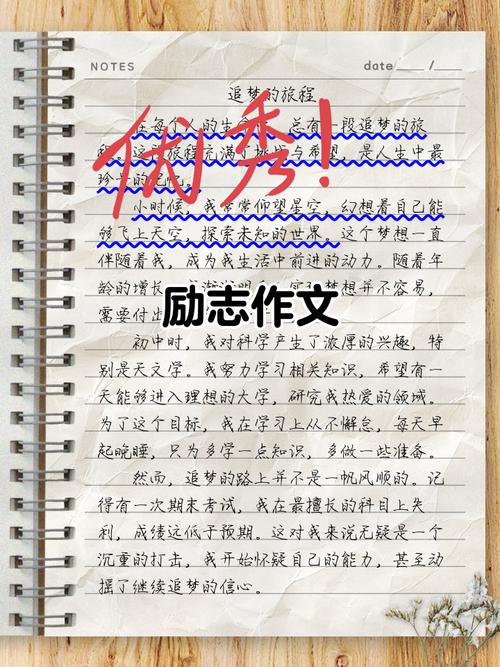 NOTES
date ____ / ____
追梦的旅程
优秀!
在每个人的生命 总有一段追梦的旅
程。这 旅程充满了挑战与希望，是人生中最
珍 的记忆。
小时候，我常常仰望星空，幻想着自己能
够飞上天空，探索未知的世界。这个梦想一直
伴随着我，成为我生活中前进的动力。随着年
龄的增长 梦想并不容易，
励志作文
需要付出
初中时，我对科学产生了浓厚的兴趣，特
别是天文学。我努力学习相关知识，希望有一
天能够进入理想的大学，研究我热爱的领域。
为了这个目标，我在学习上从不懈怠，每天早
起晚睡，只为多学一点知识，多做一些准备。
然而，追梦的路上并不是一帆风顺的。记
得有一次期末考试，我在最擅长的科目上失
利，成绩远低于预期。这对我来说无疑是一个
沉重的打击，我开始怀疑自己的能力，甚至动
摇了继续追梦的信心。